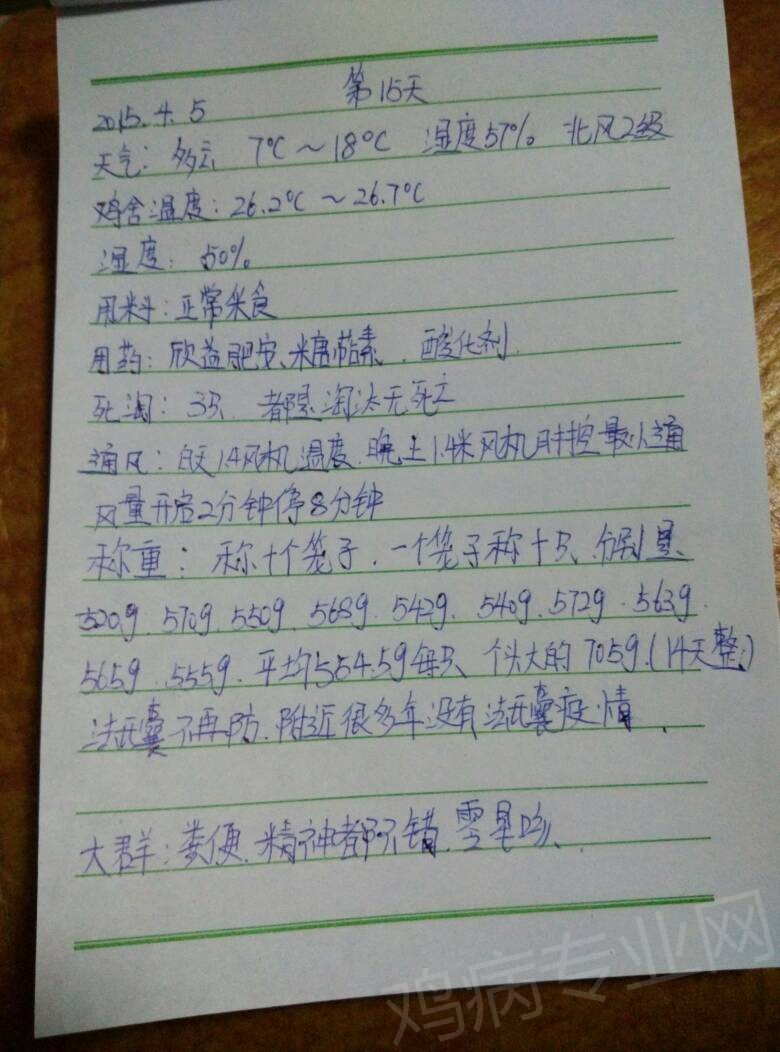 第15天
2015.4.5
天气：多云 7℃～18℃ 湿度57% 北风2级
鸡舍温度：26.2℃～26.7℃
湿度：50%
用料：正常采食
用药：欣益肥安、糖萜素、酸化剂
死淘：3只、都是淘汰无死亡
通风：白天1.4风机温度、晚上1.4米风机时控最小通
风量开启2分钟停8分钟
称重：称十个笼子，一个笼子称十只、分别是
520g、570g、550g、568g、542g、540g、572g、563g、
565g、555g、平均554.5g每只、个头大的705g（14天整）
法氏囊不再防、附近很多年没有法氏囊疫情、
大群：粪便、精神都不错、零星咳、
鸡病专业网